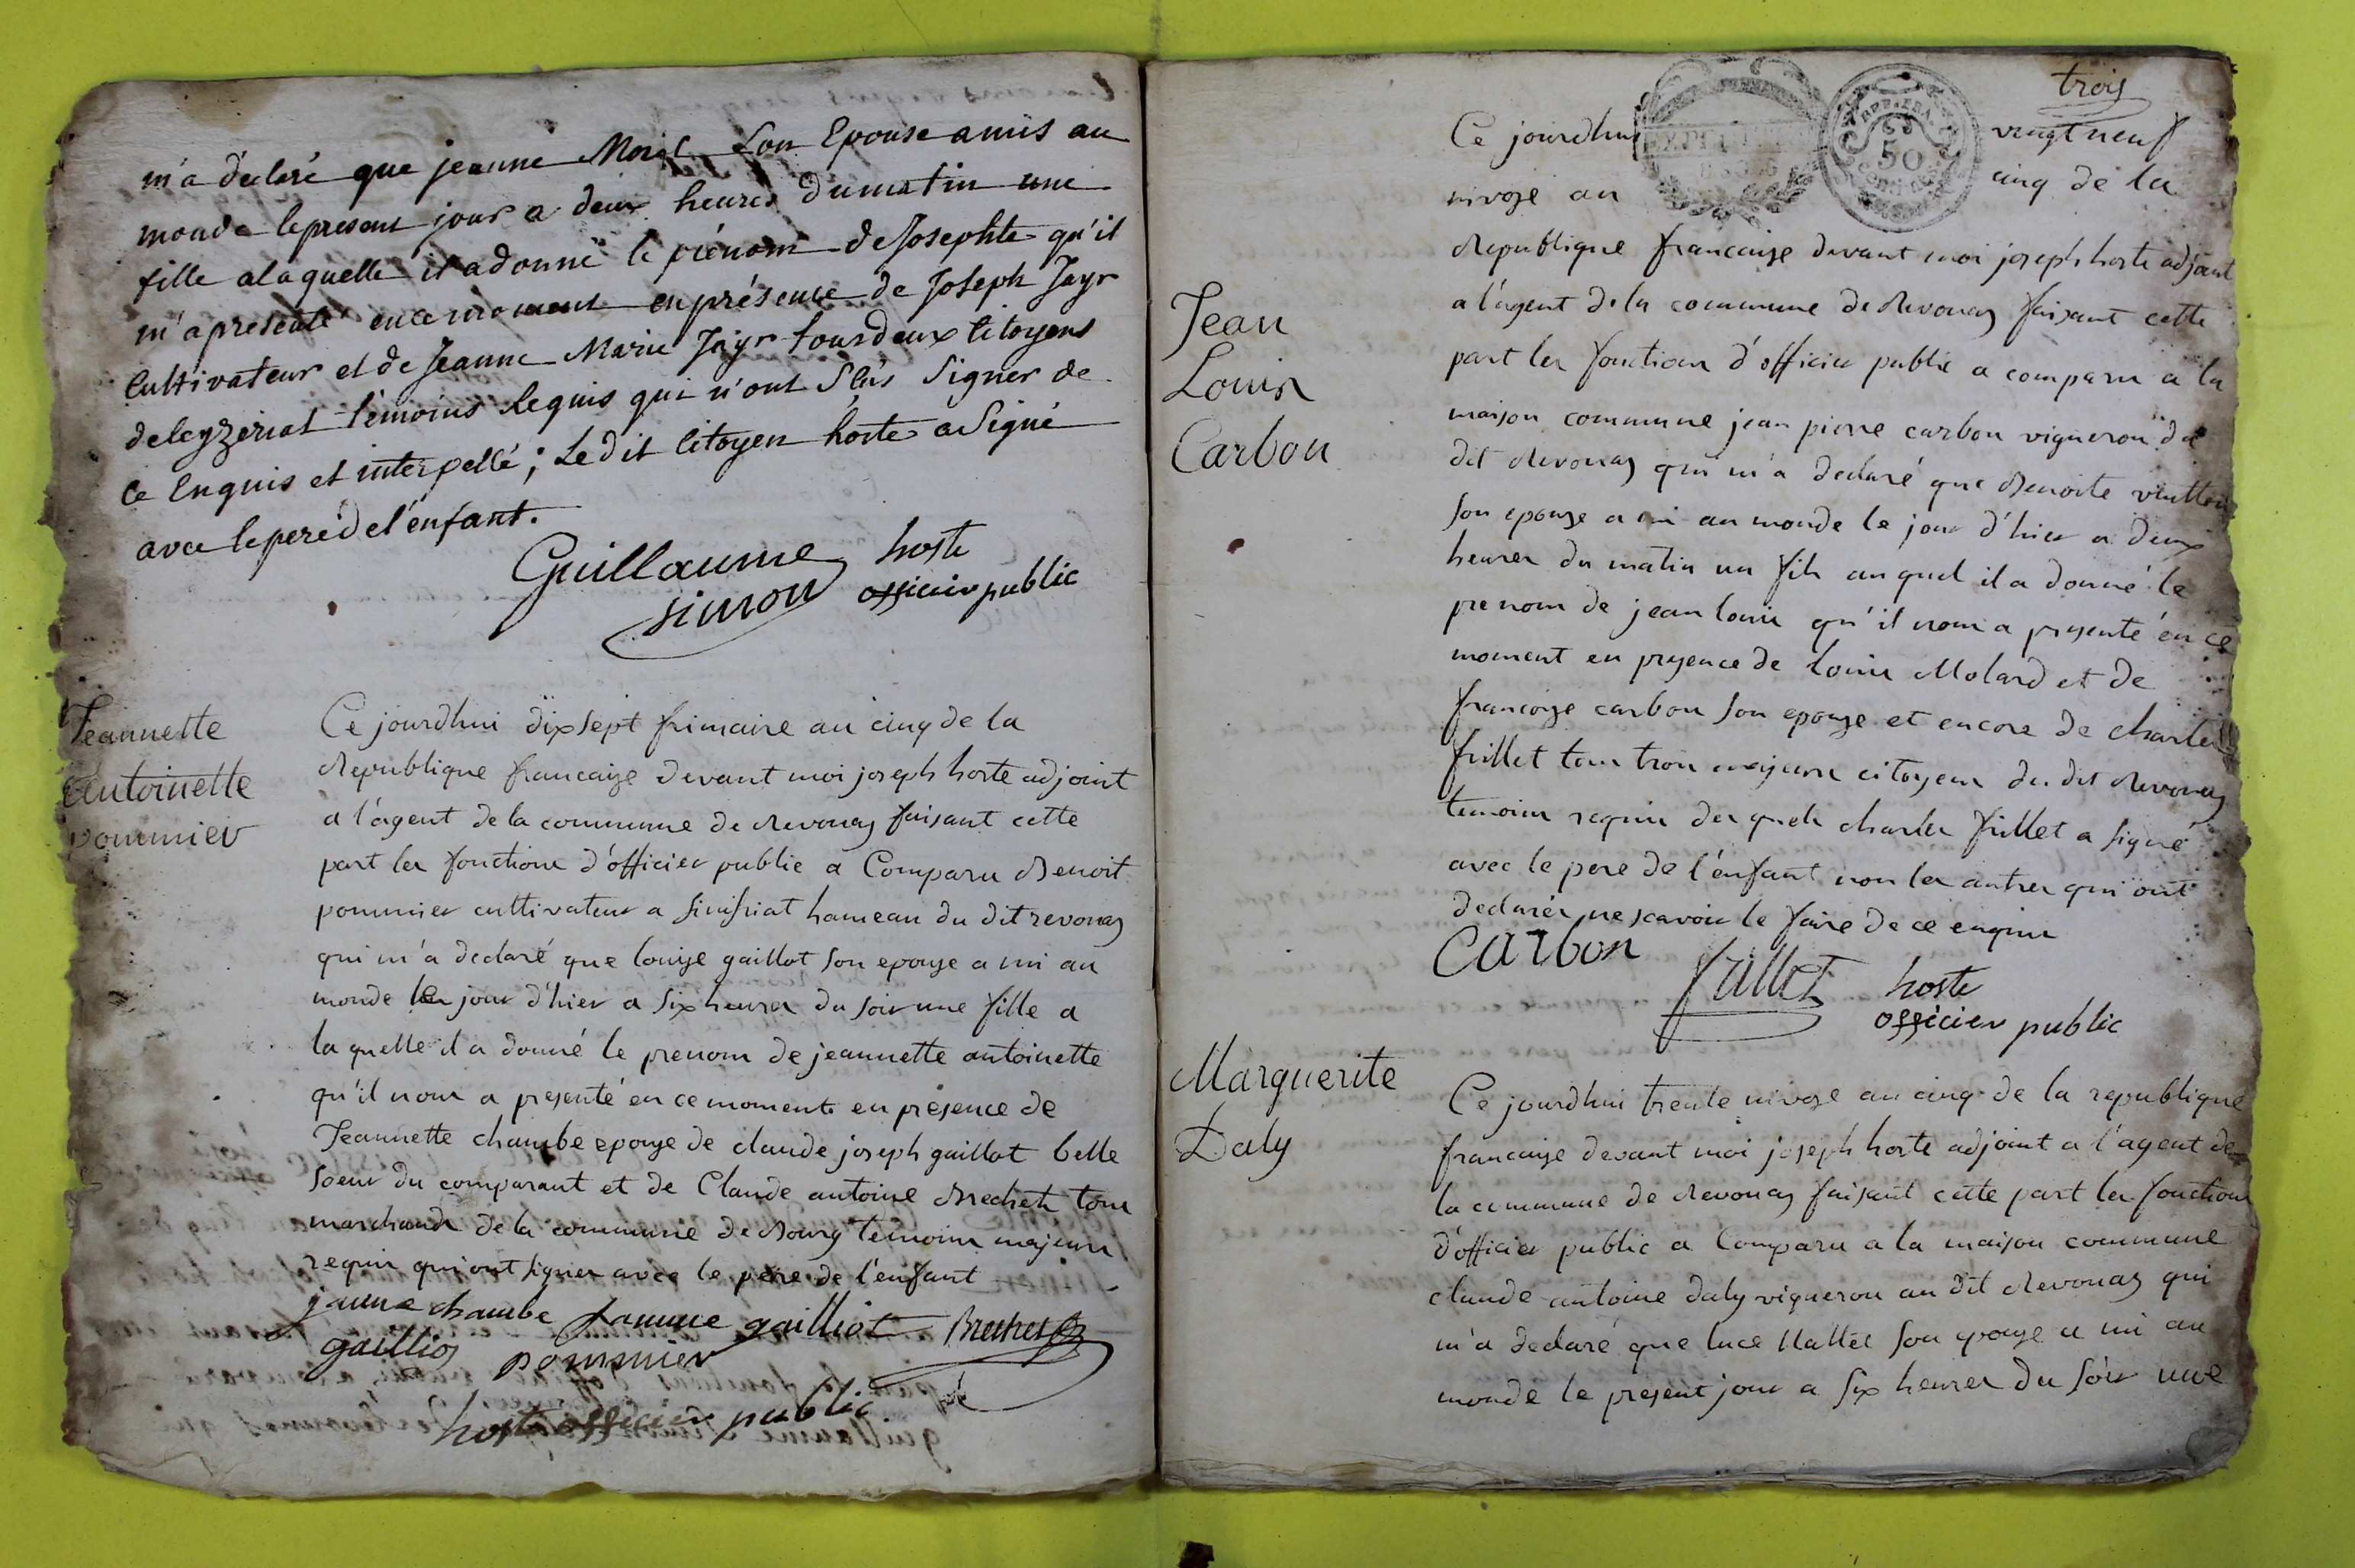 m'a déclaré que jeanne Morel Son Epouse amis au
monde lepresent jour a deux heures dumatin une
fille alaquelle il adonné le prénom deJosephte qu'il
m'apresenté encemoment enprésence de Joseph Jayr
Cultivateur et de Jeanne Marie Jayr tousdeux Citoyens
deleyzeriat témoins Requis qui n'ont Sçus Signer de
Ce Enquis et interpellé; Ledit Citoyen hoste aSigné
avec leperedel'enfant.
Guillaume
simon
hoste
officier public
Jeannette
antoinette
pommier
Ce jourdhui dixsept frimaire an cinq de la
Republique francaise devant moi joseph hoste adjoint
a l'agent de la commune de Revonas faisant cette
part les fonctions d'officier public a Comparu Benoit
pommier cultivateur a Sinisiat hameau du dit revonas
qui m'a declaré que louise gaillot son epouse a mis au
monde le jour d'hier a six heures du soir une fille a
la quelle il a donné le prenom de jeannette antoinette
qu'il nous a presenté en ce moment en presence de
Jeannette chambe epouse de claude joseph gaillot belle
soeur du comparant et de Claude antoine Brechet tous
marchands de la commune de Bourg temoins majeurs
requis qui ont signer avec le pere de l'enfant
jeanne chambe famme gailliot Brechet
gaillios pommier
hoste officier public
trois
Ce jourdhui vingt neuf
nivose an cinq de la
REP. FRA.
50
Republique francaise devant moi joseph hoste adjoint
a l'agent de la commune de Revonas faisant cette
part les fonctions d'officier public a comparu a la
maison commune jean pierre carbon vigneron du
dit Revonas qui m'a declaré que Benoite
son epouse a mi au monde le jour d'hier a deux
heures du matin un fils auquel il a donné le
prenom de jean louis qu'il nous a presenté en ce
moment en presence de louis Molard et de
francoise carbon son epouse et encore de charles
frillet tous trois majeurs citoyens du dit Revonas
temoins requis des quels charles frillet a signé
avec le pere de l'enfant non les autres qui ont
declarés ne scavoir le faire de ce enquis
Jean
Louis
Carbon
carbon
frillet
hoste
officier public
Marguerite
Daly
Ce jourdhui trente nivose an cinq de la republique
francaise devant moi joseph hoste adjoint a l'agent de
la commune de Revonas faisant cette part les fonctions
d'officier public a Comparu a la maison commune
claude antoine daly vigneron au dit Revonas qui
m'a declaré que luce Vallet son epouse a mi au
monde le present jour a six heures du soir une